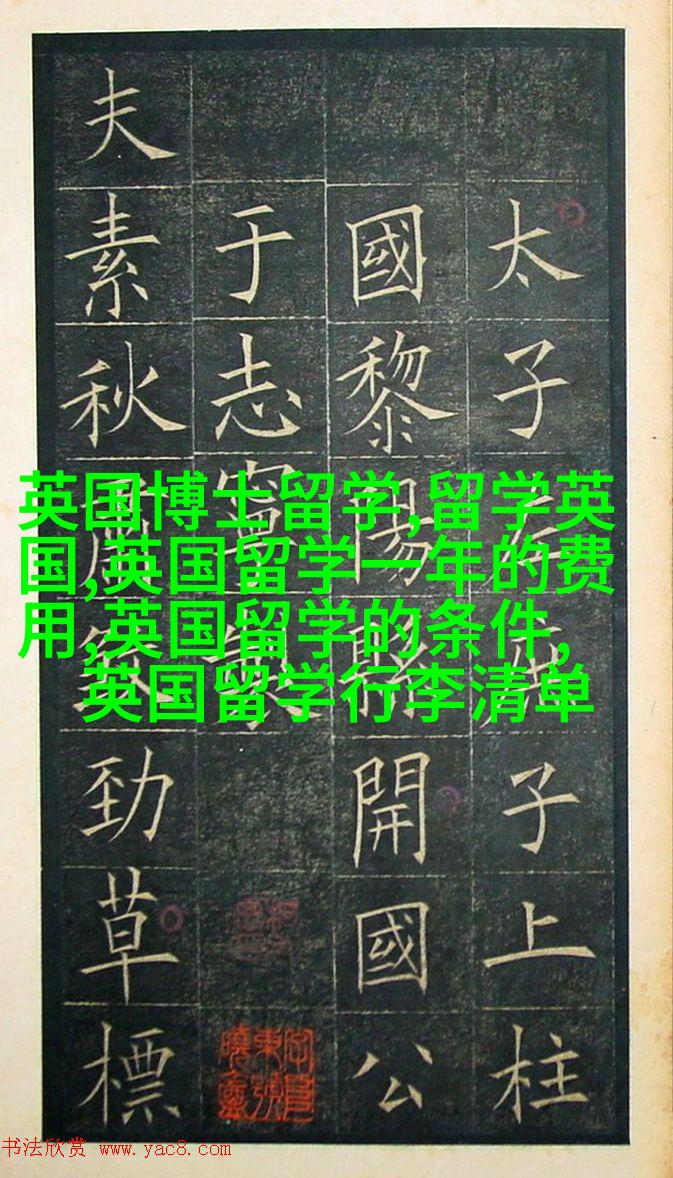 太子子上柱
國黎陽縣開國公
于志寧製
夫素秋勁草標
英国博士留学,留学英
国,英国留学一年的费
用,英国留学的条件,
英国留学行李清单
书法欣赏 www.yac8.com